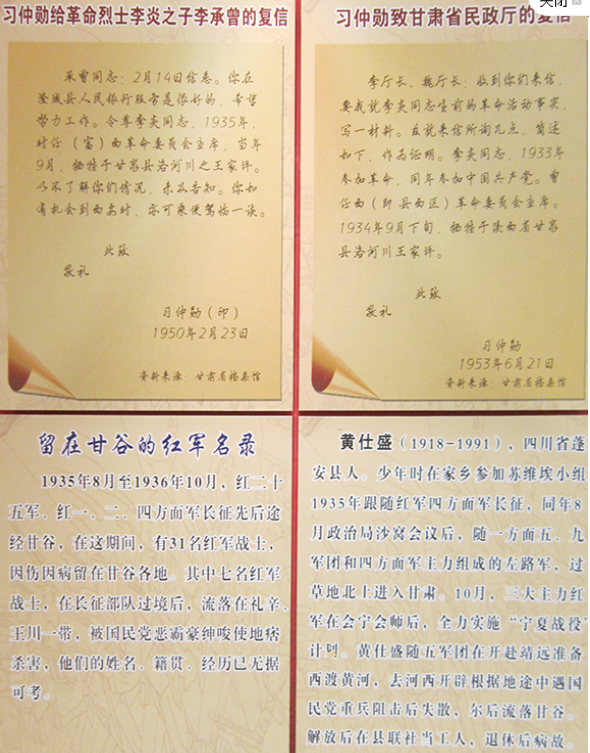 关闭
习仲勋给革命烈士李炎之子李承曾的复信
承曾同志：2月14日信悉。你在
澄城县人民银行服务是很好的，希望
努力工作。令尊李炎同志，1935年，
时任（富）西革命委员会主席，当年
9月，牺牲于甘泉县洛河川之王家坪。
以不了解你们情况，未及告知。你如
有机会到西安时，你可乘便驾临一谈。
此致
敬礼
习仲勋（印）
1950年2月23日
资料来源：甘肃省档案馆
习仲勋致甘肃省民政厅的复信
李厅长、魏厅长：收到你们来信，
要我就李炎同志生前的革命活动事实，
写一材料。兹就来信所询几点，简述
如下，作为证明。李炎同志，1933年
参加革命，同年参加中国共产党。曾
任西（即县西区）革命委员会主席。
1934年9月下旬，牺牲于陕西省甘泉
县洛河川王家坪。
此致
敬礼
习仲勋
1953年6月21日
资料来源：甘肃省档案馆
留在甘谷的红军名录
1935年8月至1936年10月，红二十
五军、红一、二、四方面军长征先后途
经甘谷，在这期间，有31名红军战士，
因伤因病留在甘谷各地。其中七名红军
战士，在长征部队过境后，流落在礼辛、
王川一带，被国民党恶霸豪绅唆使地痞
杀害，他们的姓名、籍贯、经历已无据
可考。
黄仕盛（1918-1991），四川省蓬
安县人。少年时在家乡参加苏维埃小组
1935年跟随红军四方面军长征，同年8
月政治局沙窝会议后，随一方面五、九
军团和四方面军主力组成的左路军，过
草地北上进入甘肃。10月，三大主力红
军在会宁会师后，全力实施“宁夏战役”
计划。黄仕盛随五军团在开赴靖远准备
西渡黄河，去河西开辟根据地途中遇国
民党重兵阻击后失散，尔后流落甘谷。
解放后在县联社当工人，退休后病故。